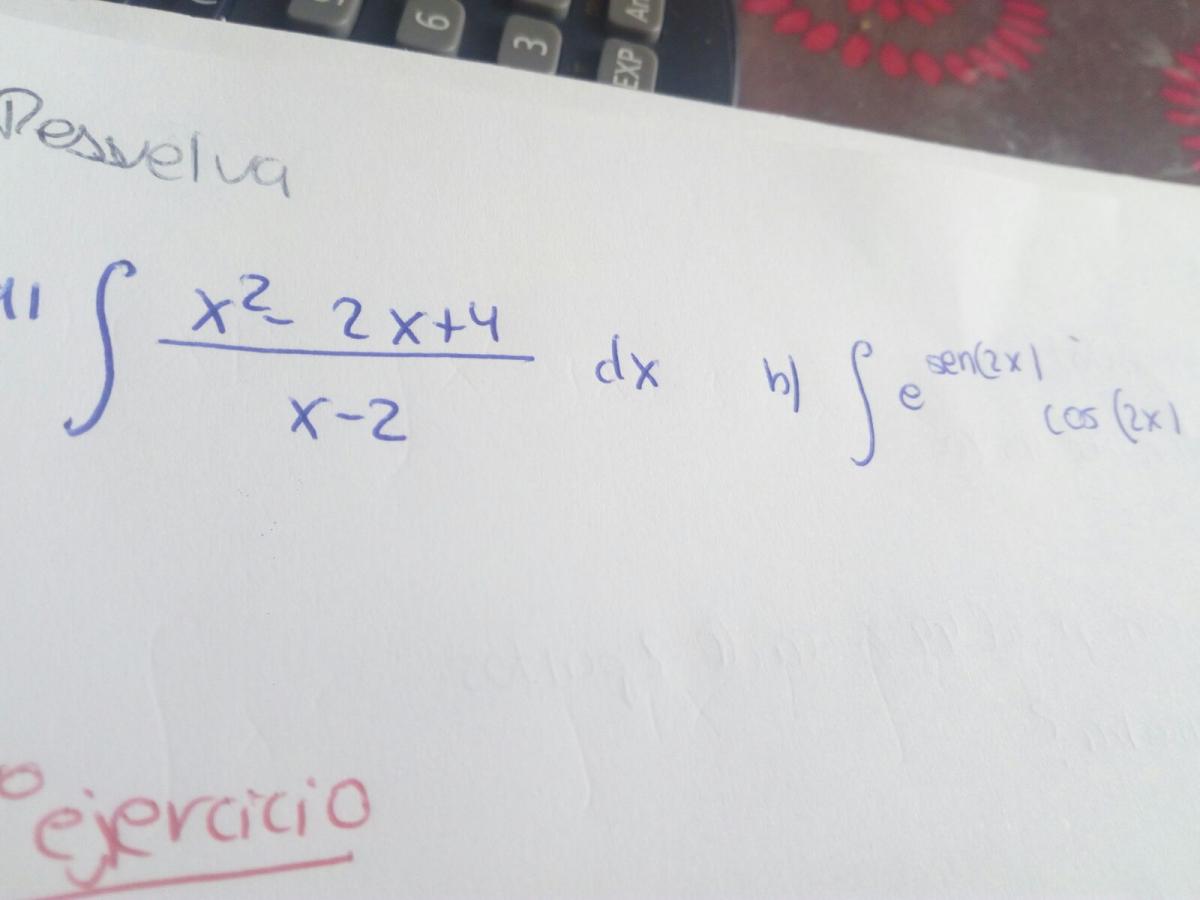 6 3 EXP An
Resuelva
∫ x²- 2x+4 / x-2 dx b) ∫ e^sen(2x) cos(2x)
ejercicio